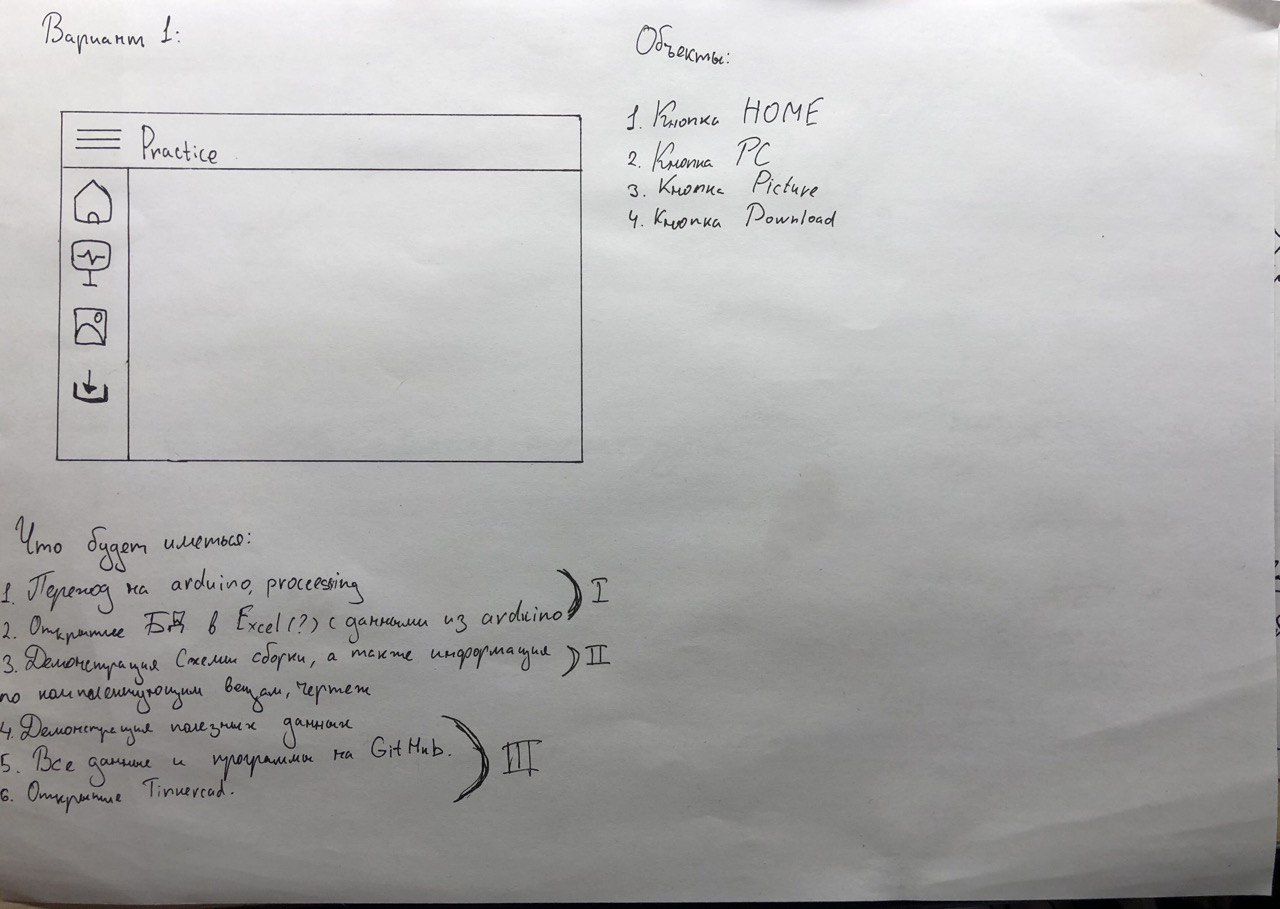 Вариант 1:
Practice
Объекты:
1. Кнопка HOME
2. Кнопка PC
3. Кнопка Picture
4. Кнопка Download
Что будет иметься:
1. Переход на arduino, proccessing
2. Открытие БД в Excel (?) с данными из arduino
I
3. Демонстрация Схемы сборки, а также информация
II
по комплектующим вещам, чертеж
4. Демонстрация полезных данных
5. Все данные и программы на GitHub.
6. Открытие Tinkercad.
III